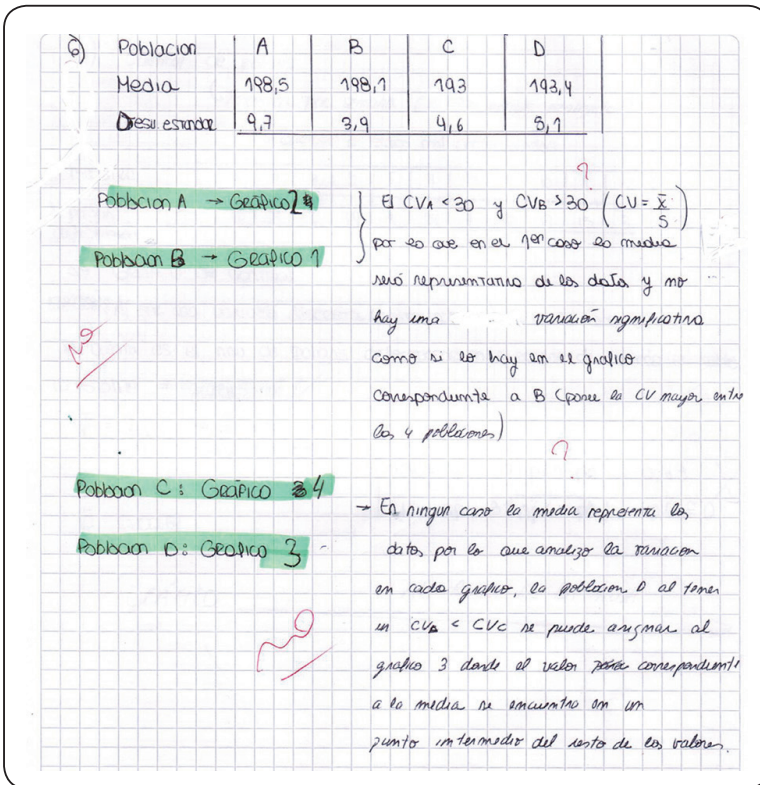 6) Poblacion A B C D
Media 198,5 198,1 193 193,4
Desv estandar 9,7 3,9 4,6 5,1
?
Poblacion A → Gráfico 2
El CVA < 30 y CVB > 30 (CV = x̄/S)
por lo que en el 1er caso la media
Poblacion B → Grafico 1
será representativa de los datos y no
hay una variación significativa
no
como si lo hay en el grafico
correspondiente a B (posee la CV mayor entre
las 4 poblaciones)
?
Poblacion C: Gráfico 4
→ En ningun caso la media representa los
Poblacion D: Grafico 3
datos por lo que analizo la variacion
en cada grafico, la poblacion D al tener
un CVD < CVC se puede asignar al
no
grafico 3 donde el valor correspondiente
a la media se encuentra en un
punto intermedio del resto de los valores.